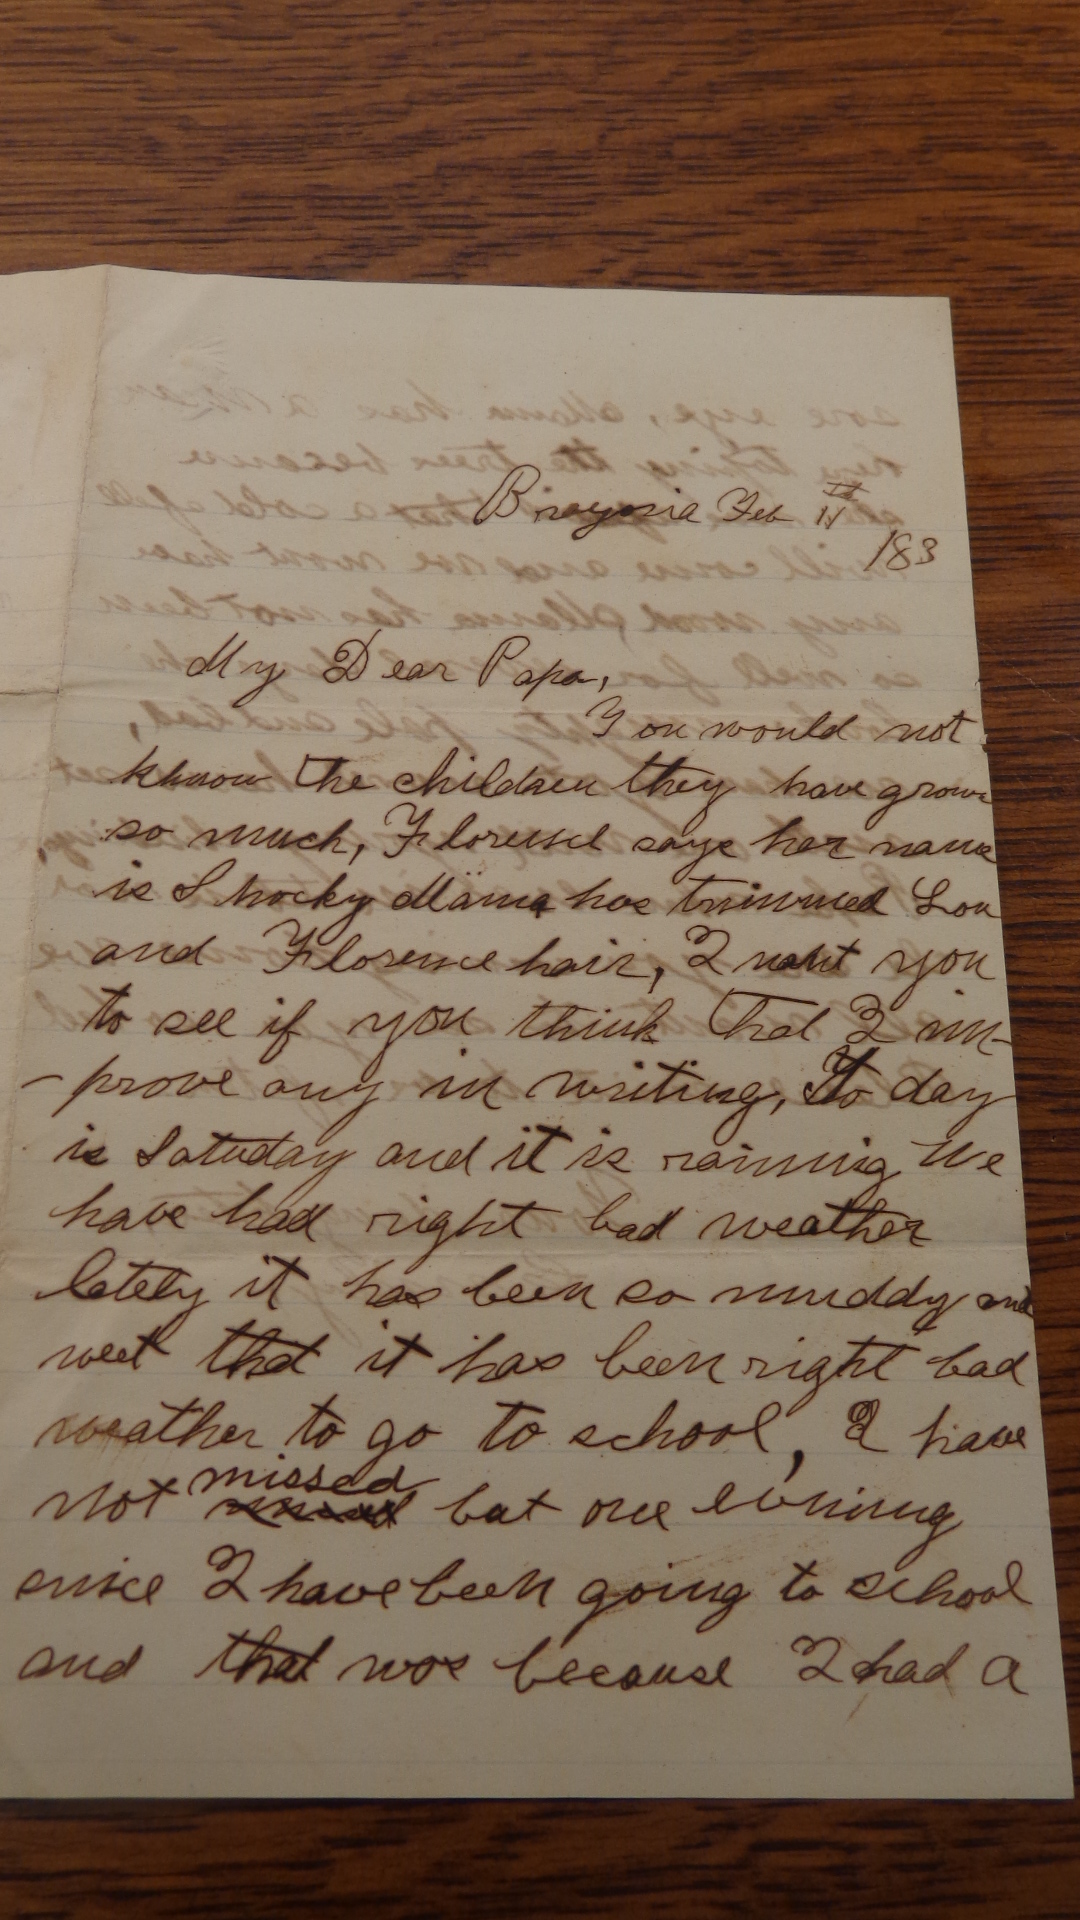 Feb
183
My Dear Papa,
You would not
know the children they have grown
so much, Florence says her name
is Shocky Mama has trimmed Lou
and Florence hair, I want you
to see if you think that I im-
-prove any in writing, To day
is Satuday and it is raining We
have had right bad weather
lately it has been so muddy and
wet that it has been right bad
weather to go to school, I have
missed
not but one evening
since I have been going to school
and that was because I had a